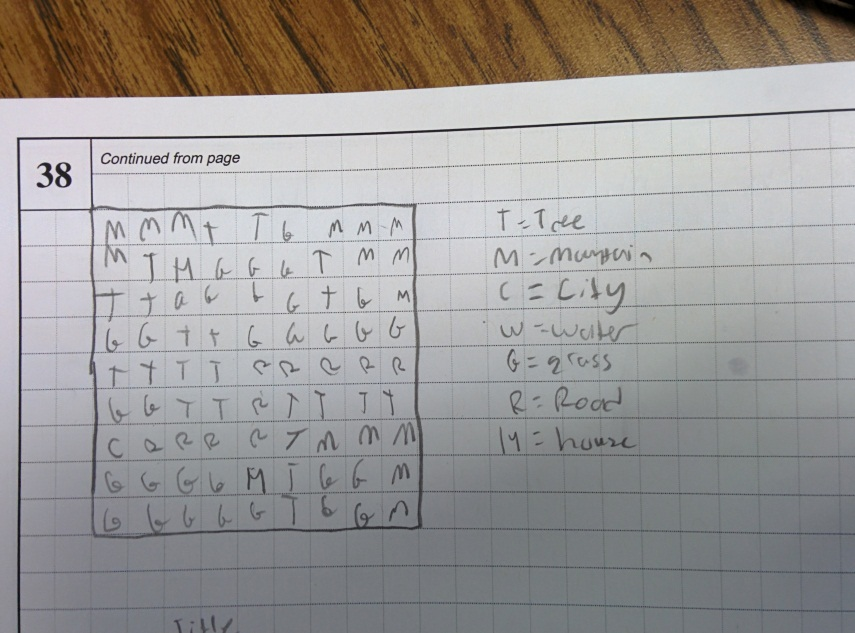 38 Continued from page
M M M T T G M M M
M T H G G G T M M
T T G G G G T G M
G G T T G G G G G
T T T T R R R R R
G G T T R T T T T
C R R R R T M M M
G G G G H T G G M
G G G G G T G G M
T = Tree
C = City
W = water
G = grass
R = Road
H = house
Title